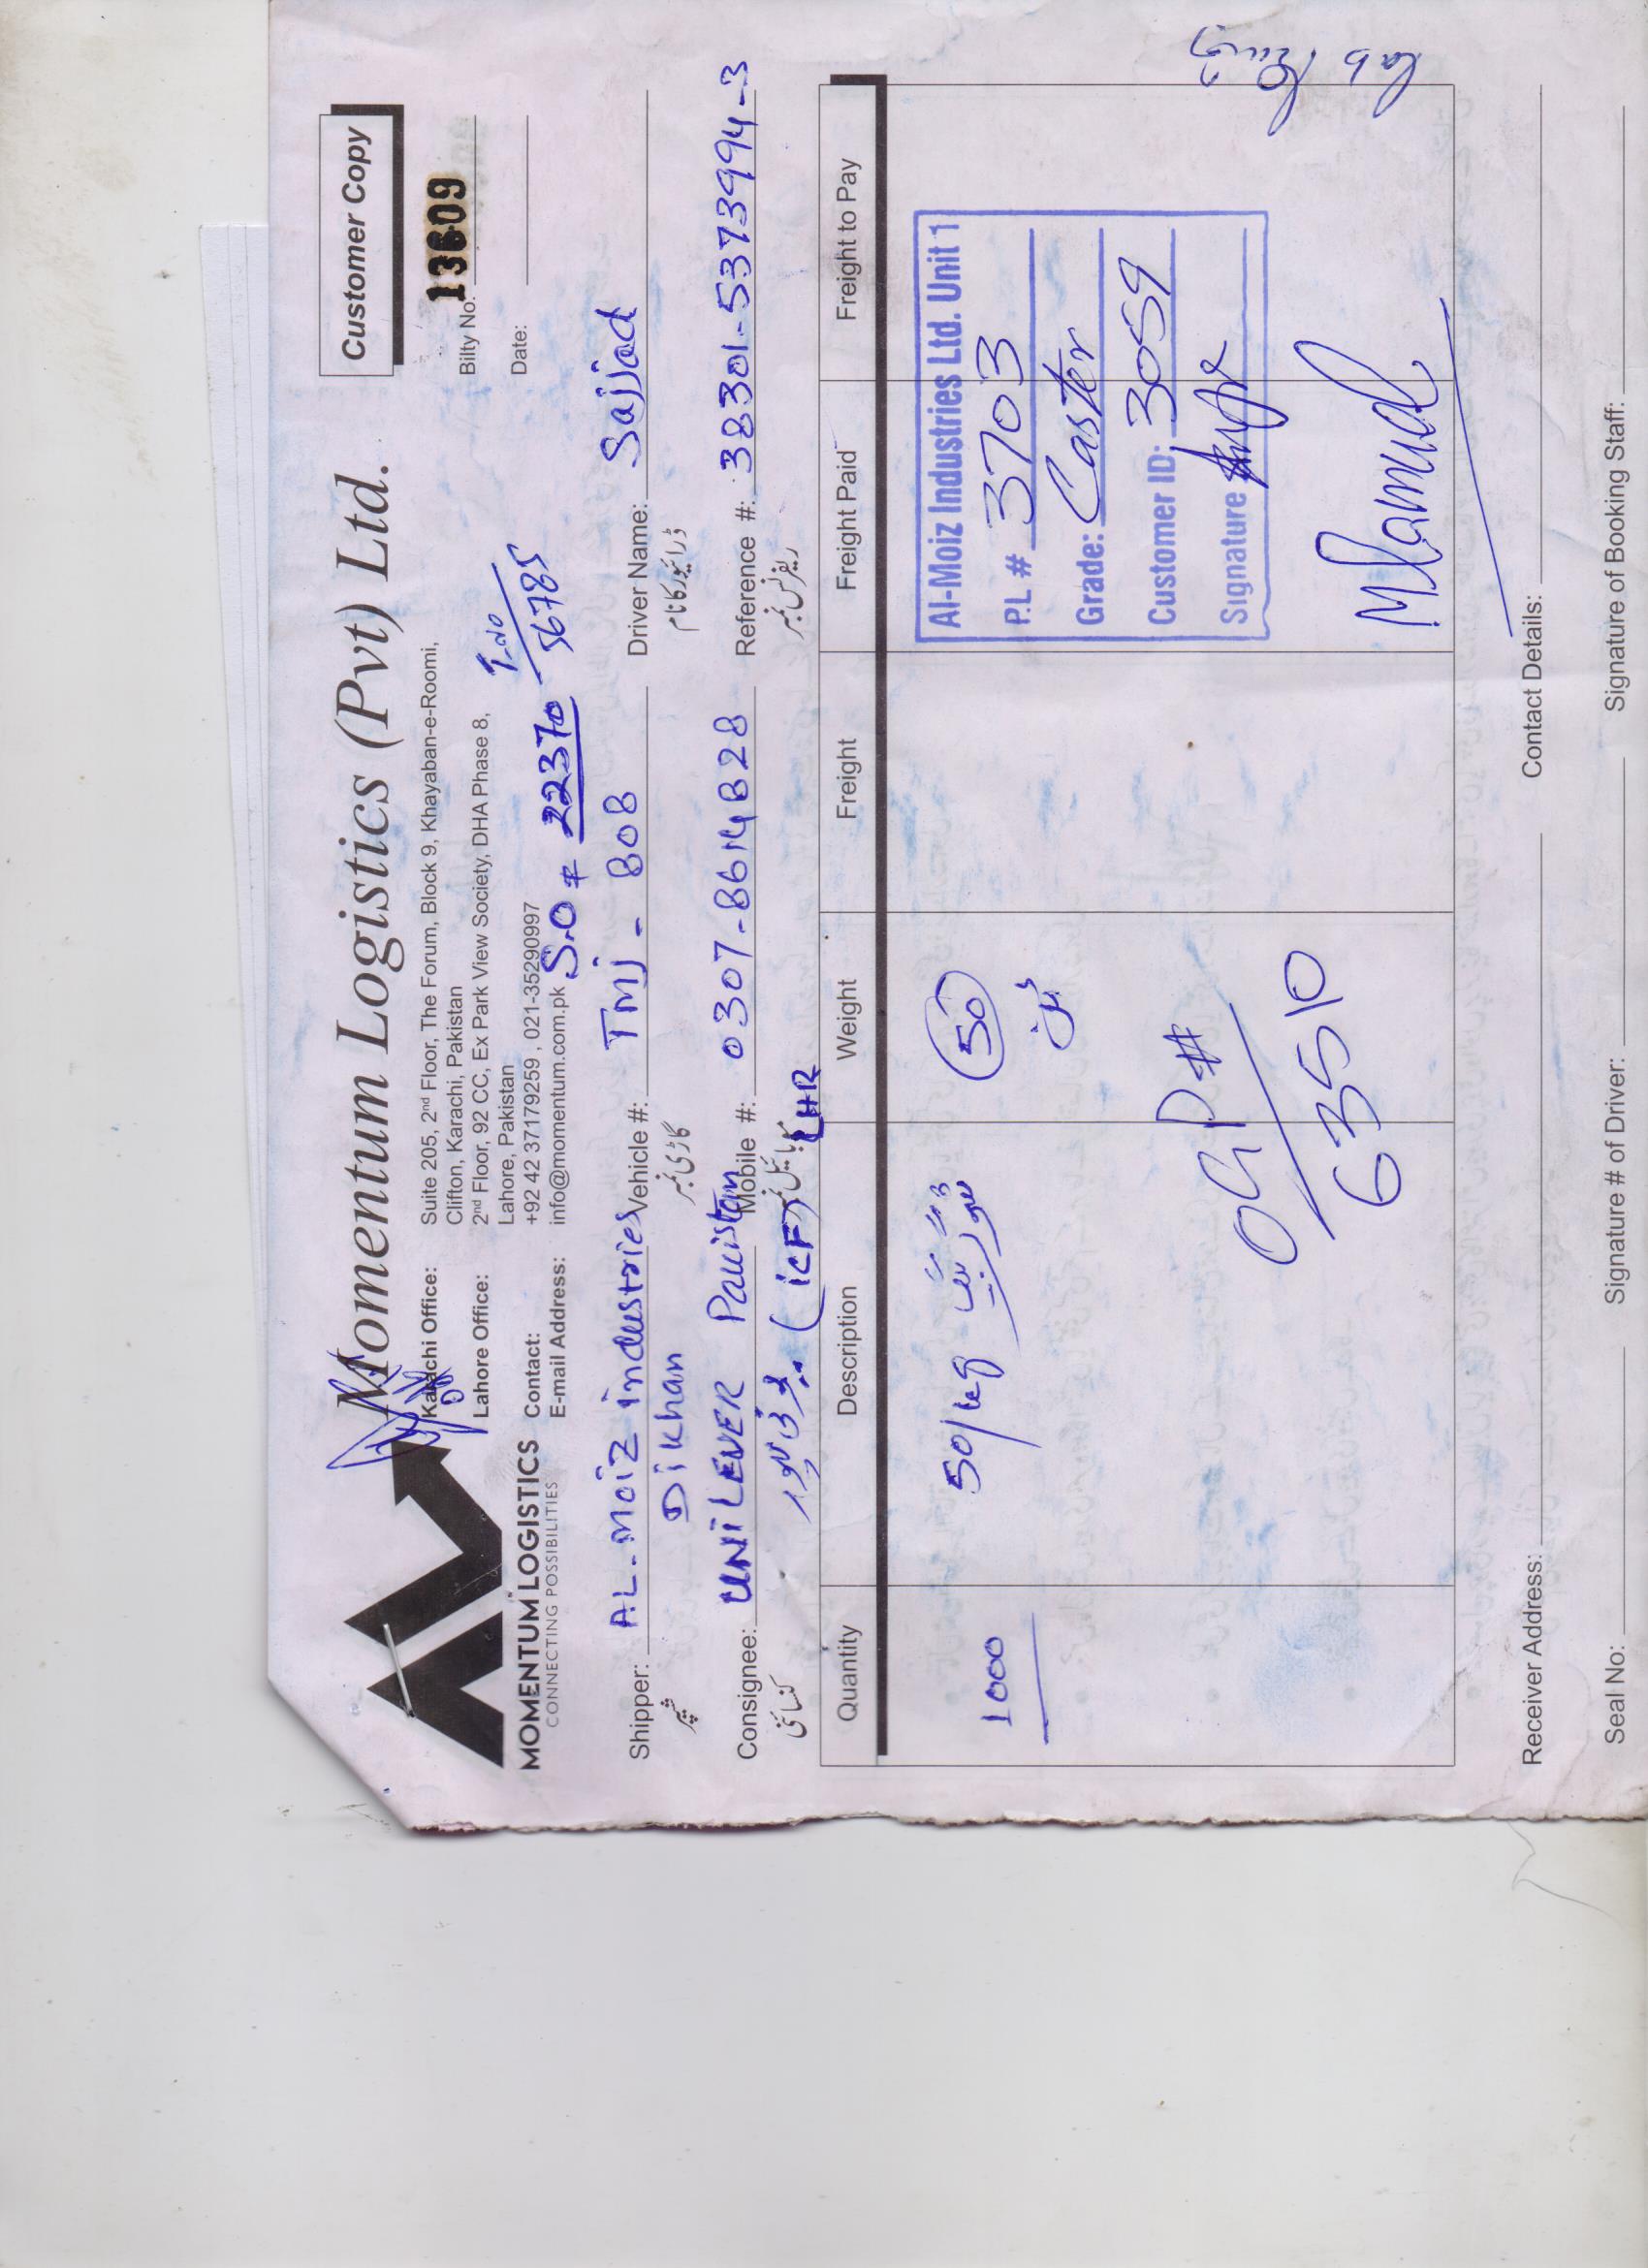 Customer Copy
Momentum Logistics (Pvt) Ltd.
Karachi Office: Suite 205, 2nd Floor, The Forum, Block 9, Khayaban-e-Roomi,
Clifton, Karachi, Pakistan
Lahore Office: 2nd Floor, 92 CC, Ex Park View Society, DHA Phase 8,
Lahore, Pakistan
Contact: +92 42 37179259 , 021-35290997
E-mail Address: info@momentum.com.pk
MOMENTUM LOGISTICS
CONNECTING POSSIBILITIES
Bilty No: 13609
Date:
S.O # 22370
56785
Shipper: AL-MOIZ industries
شپر
Di Khan
Vehicle #: TMJ - 808
گاڑی نمبر
Driver Name: Sajjad
ڈرائیور کا نام
Consignee: UNILEVER Pakistan
کنسائنی
(ICF) LHR
Mobile #: 0307-8614828
موبائیل نمبر
Reference #: 38301-5373994-3
ریفرنس نمبر
Quantity Description Weight Freight Freight Paid Freight to Pay
1000 50/kg 50
ٹن
OGP #
63510
Al-Moiz Industries Ltd. Unit 1
P.L # 3703
Grade: Caster
Customer ID: 3059
Signature
Receiver Address: Contact Details:
Seal No: Signature # of Driver: Signature of Booking Staff: